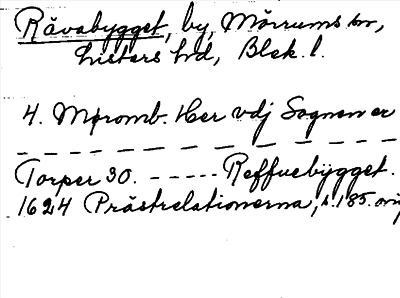 Rävabygget, by, Mörrums sn,
Listers hd, Blek. l.
4. Mpromb. Her vdj Sognen er
Torper 30. ----- Reffuebÿgget.
1624 Prästrelationerna, s. 185. orig